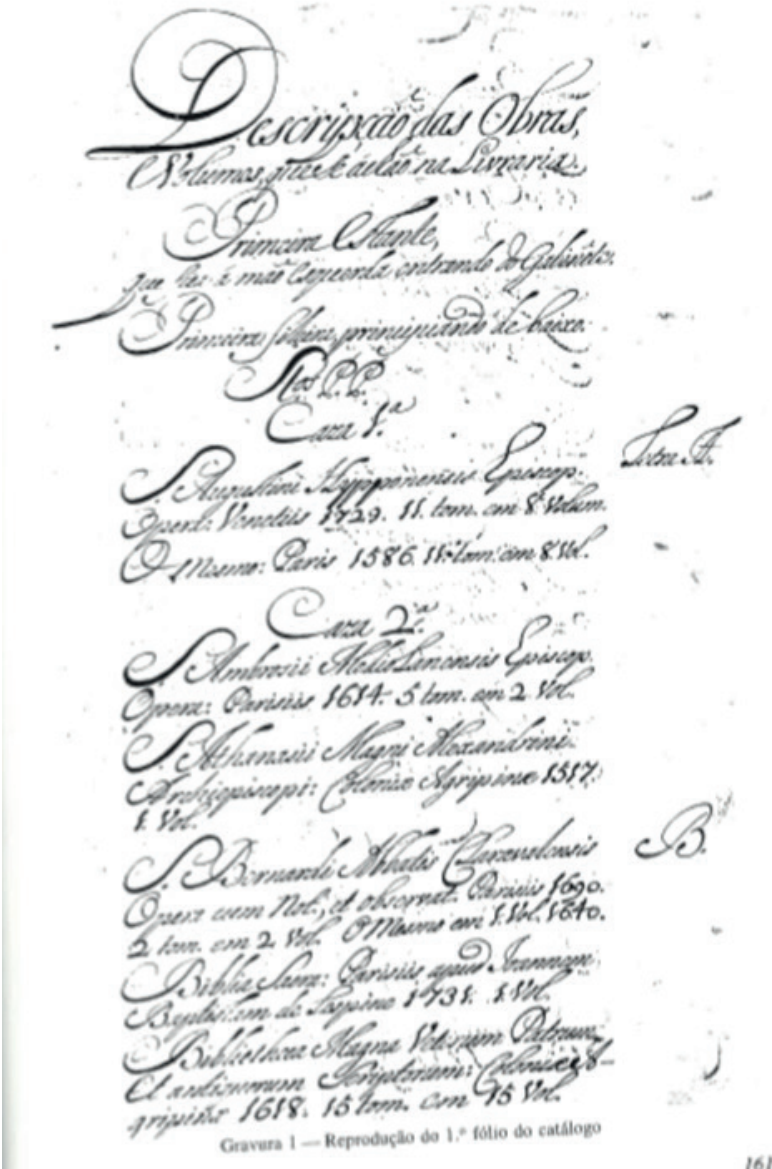 Descripção das Obras,
e Volumes, que se achão na Livraria.
Primeira Estante,
que fica á mão esquerda entrando do Gabinête.
Primeira fileira, principiando de baixo.
Stos P.P.
Caza 1.ª
Letra A.
S. Augustini Hypponensis Episcop.
Opera: Venetiis 1729. 11. tom. em 8 Volum.
O Mesmo: Paris 1586. 11. tom. em 8. Vol.
Caza 2.ª
S. Ambrosii Mediolanensis Episcop.
Opera: Parisiis 1614. 5 tom. em 2 Vol.
S. Athanasii Magni Alexandrini
Archiepiscopi: Coloniæ Agripinæ 1517.
1. Vol.
S. Bernardi Abbatis Claravalensis
B.
Opera cum Not., et observat. Parisiis 1690.
2 tom. em 2. Vol. O Mesmo em 1. Vol. 1640.
Biblia Sacra: Parisiis apud Joannem
Baptistam de Lespine 1731. 1. Vol.
Bibliotheca Magna Veterum Patrum,
et antiquorum Scriptorum: Coloniæ A-
gripinæ 1618. 15 tom. em 15 Vol.
Gravura 1 — Reprodução do 1.º fólio do catálogo
161